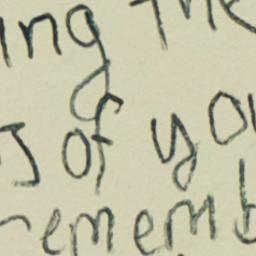 ing the
s of you
rememb